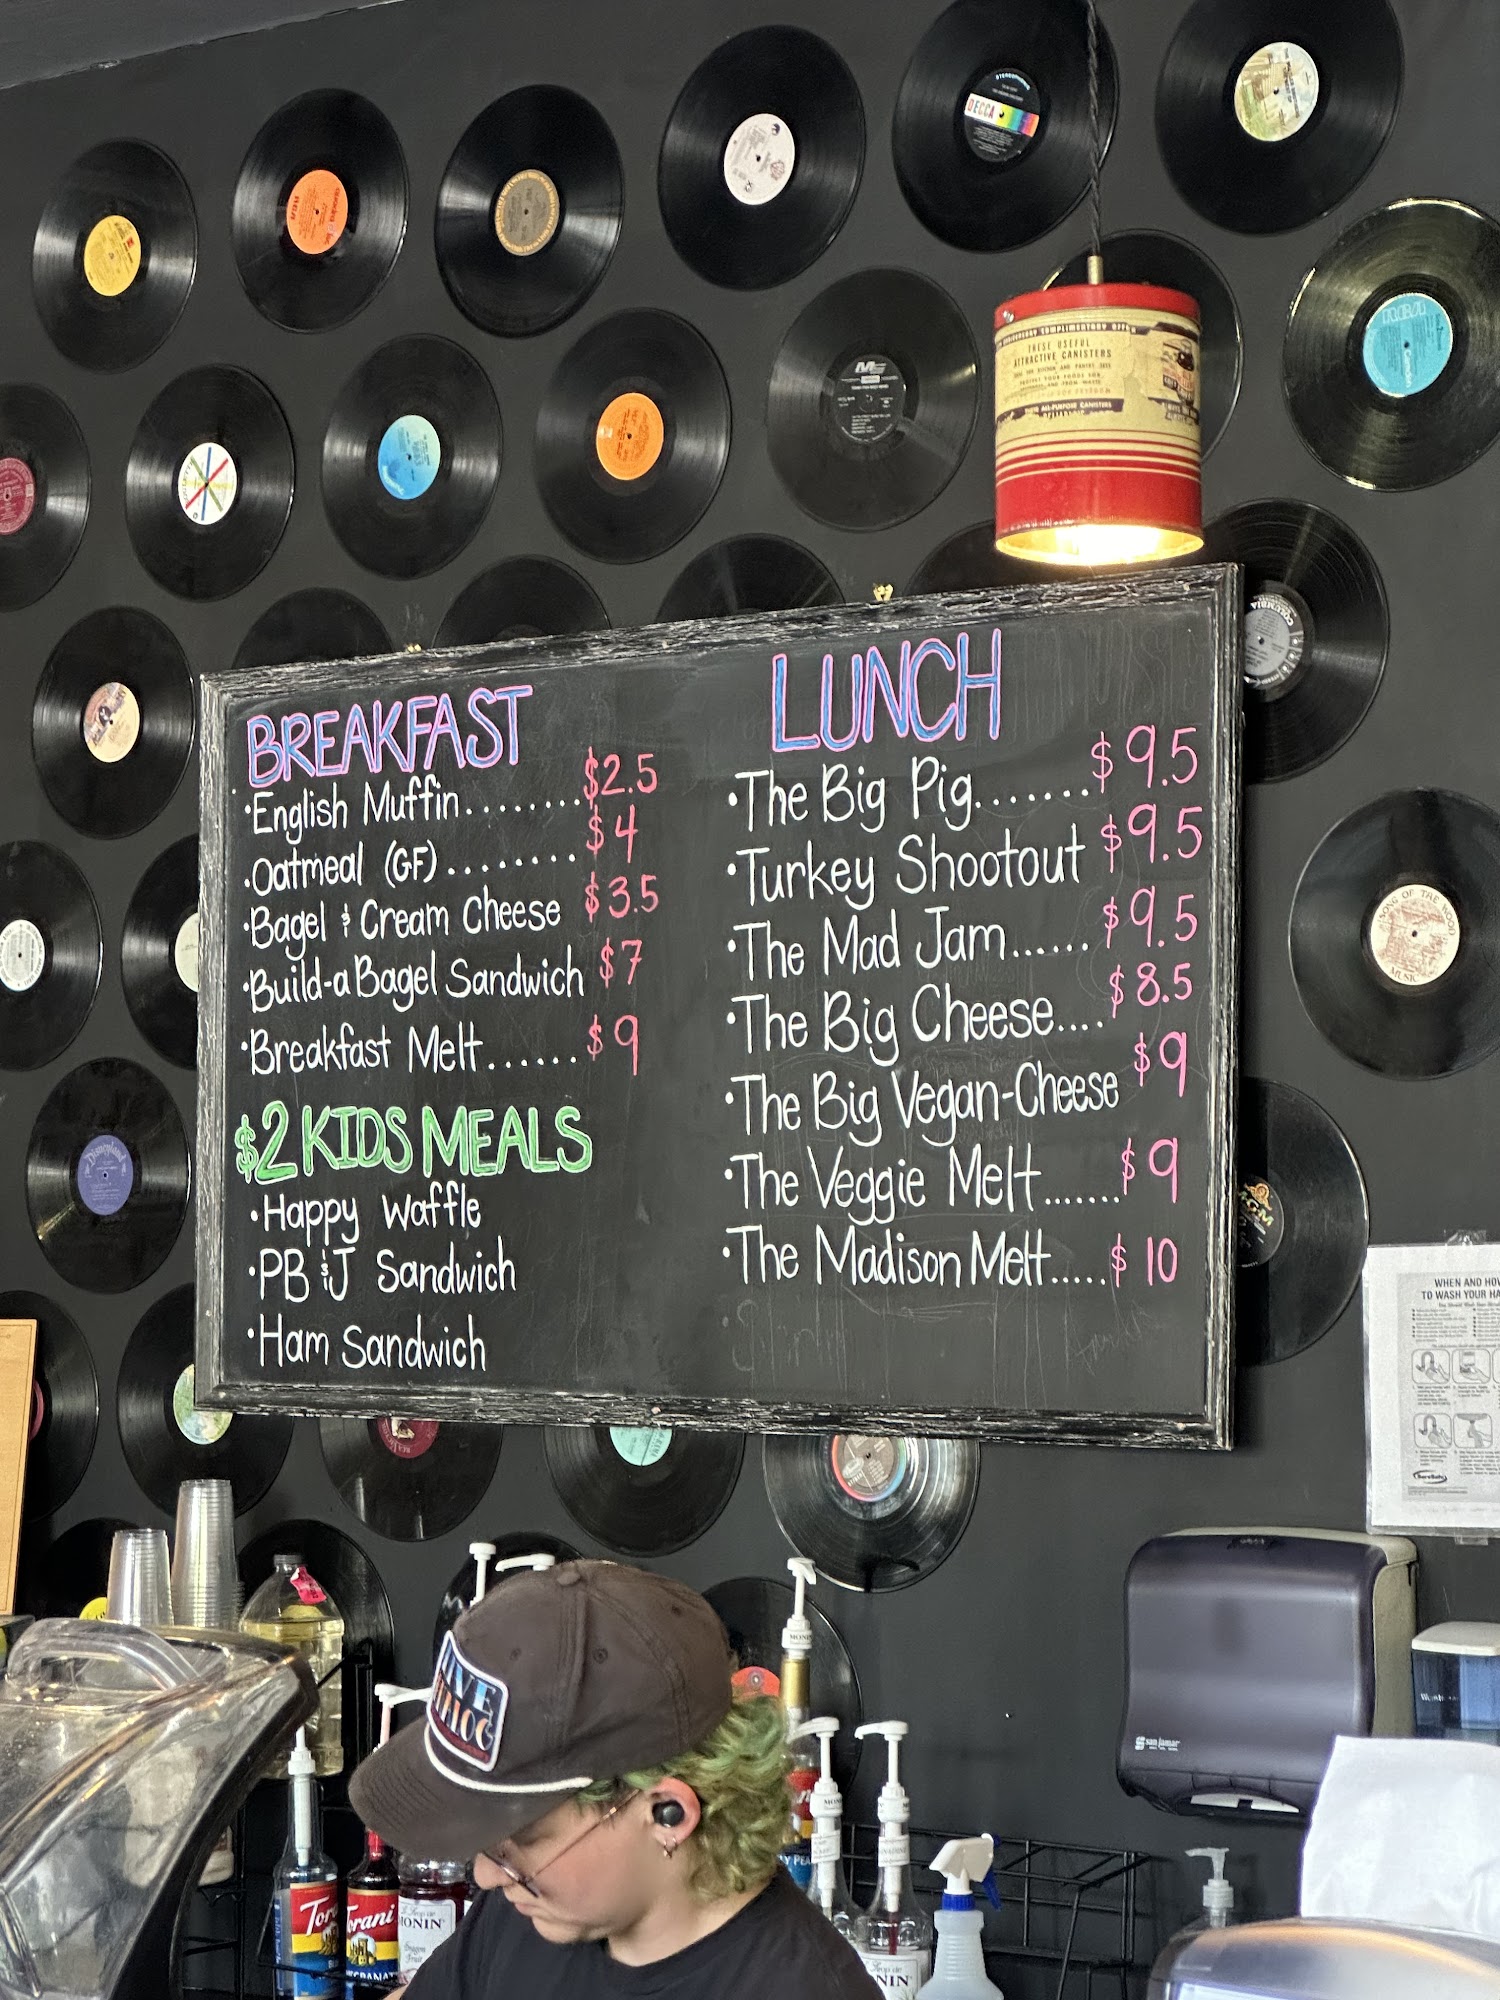 DECCA
THESE USEFUL
ATTRACTIVE CANISTERS
ALL-PURPOSE CANISTERS
RCA
COLUMBIA
BREAKFAST
• English Muffin........ $2.5
• Oatmeal (GF)......... $4
• Bagel & Cream Cheese $3.5
• Build-a Bagel Sandwich $7
• Breakfast Melt...... $9
$2 KIDS MEALS
• Happy Waffle
• PB & J Sandwich
• Ham Sandwich
LUNCH
• The Big Pig....... $9.5
• Turkey Shootout $9.5
• The Mad Jam...... $9.5
• The Big Cheese.... $8.5
• The Big Vegan-Cheese $9
• The Veggie Melt....... $9
• The Madison Melt..... $10
SONG OF THE WOOD
MUSIC
Disneyland
MGM
WHEN AND HOW
TO WASH YOUR HA
ServSafe
san jamar
MONIN
Torani
Torani
MONIN
MONIN